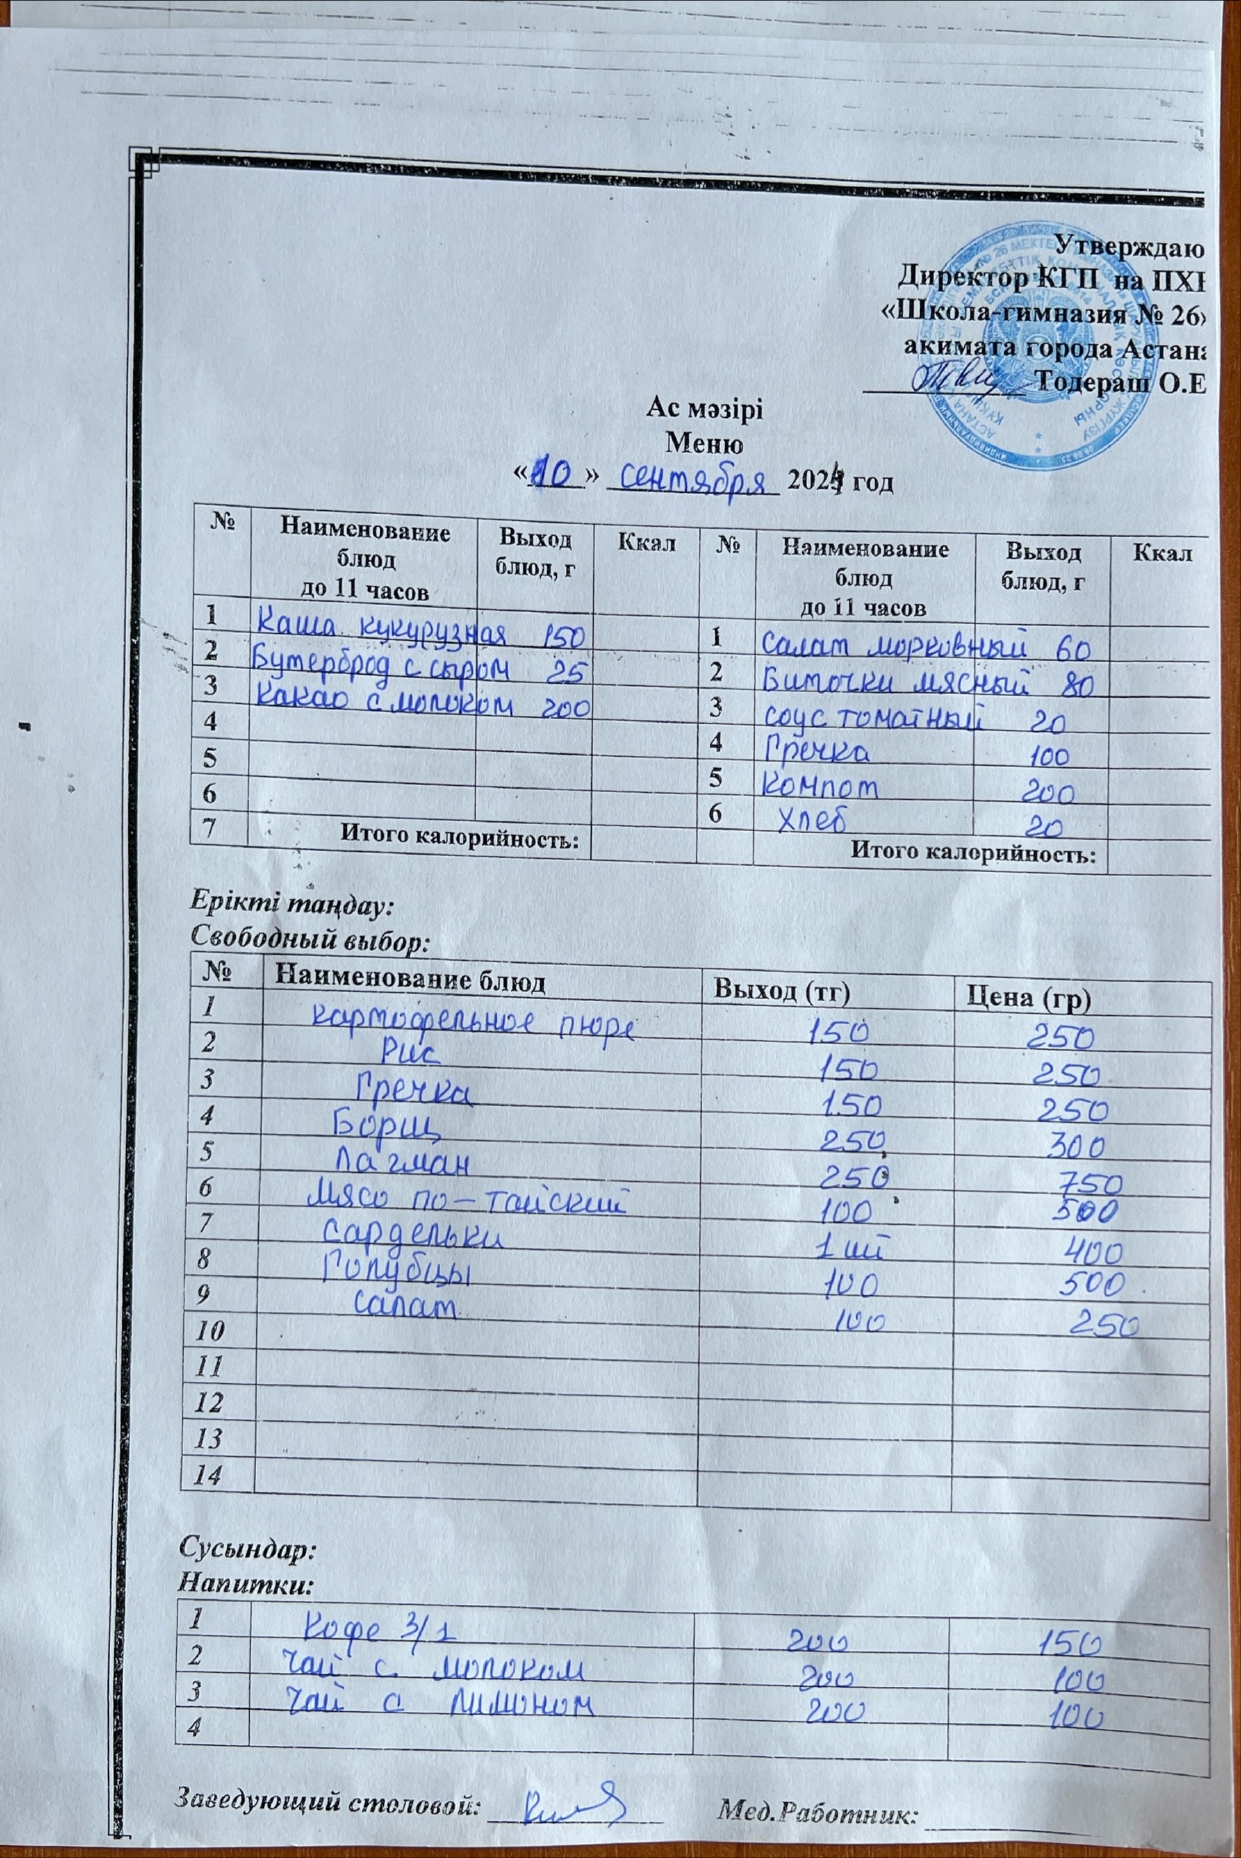 Утверждаю
Директор КГП на ПХ
«Школа-гимназия № 26»
акимата города Астан
Тодераш О.Е
Ас мәзірі
Меню
«10» сентября 2024 год
№ Наименование блюд до 11 часов Выход блюд, г Ккал № Наименование блюд до 11 часов Выход блюд, г Ккал
1 Каша кукурузная 150 1 Салат морковный 60
2 Бутерброд с сыром 25 2 Биточки мясный 80
3 Какао с молоком 200 3 соус томатный 20
4 4 Гречка 100
5 5 Компот 200
6 6 Хлеб 20
7 Итого калорийность: Итого калорийность:
Ерікті таңдау:
Свободный выбор:
№ Наименование блюд Выход (тг) Цена (гр)
1 картофельное пюре 150 250
2 Рис 150 250
3 Гречка 150 250
4 Борщ 250 300
5 Лагман 250 750
6 Мясо по-тайский 100 500
7 Сардельки 1 шт 400
8 Голубцы 100 500
9 Салат 100 250
10
11
12
13
14
Сусындар:
Напитки:
1 Кофе 3/1 200 150
2 Чай с молоком 200 100
3 Чай с лимоном 200 100
4
Заведующий столовой: Мед.Работник: